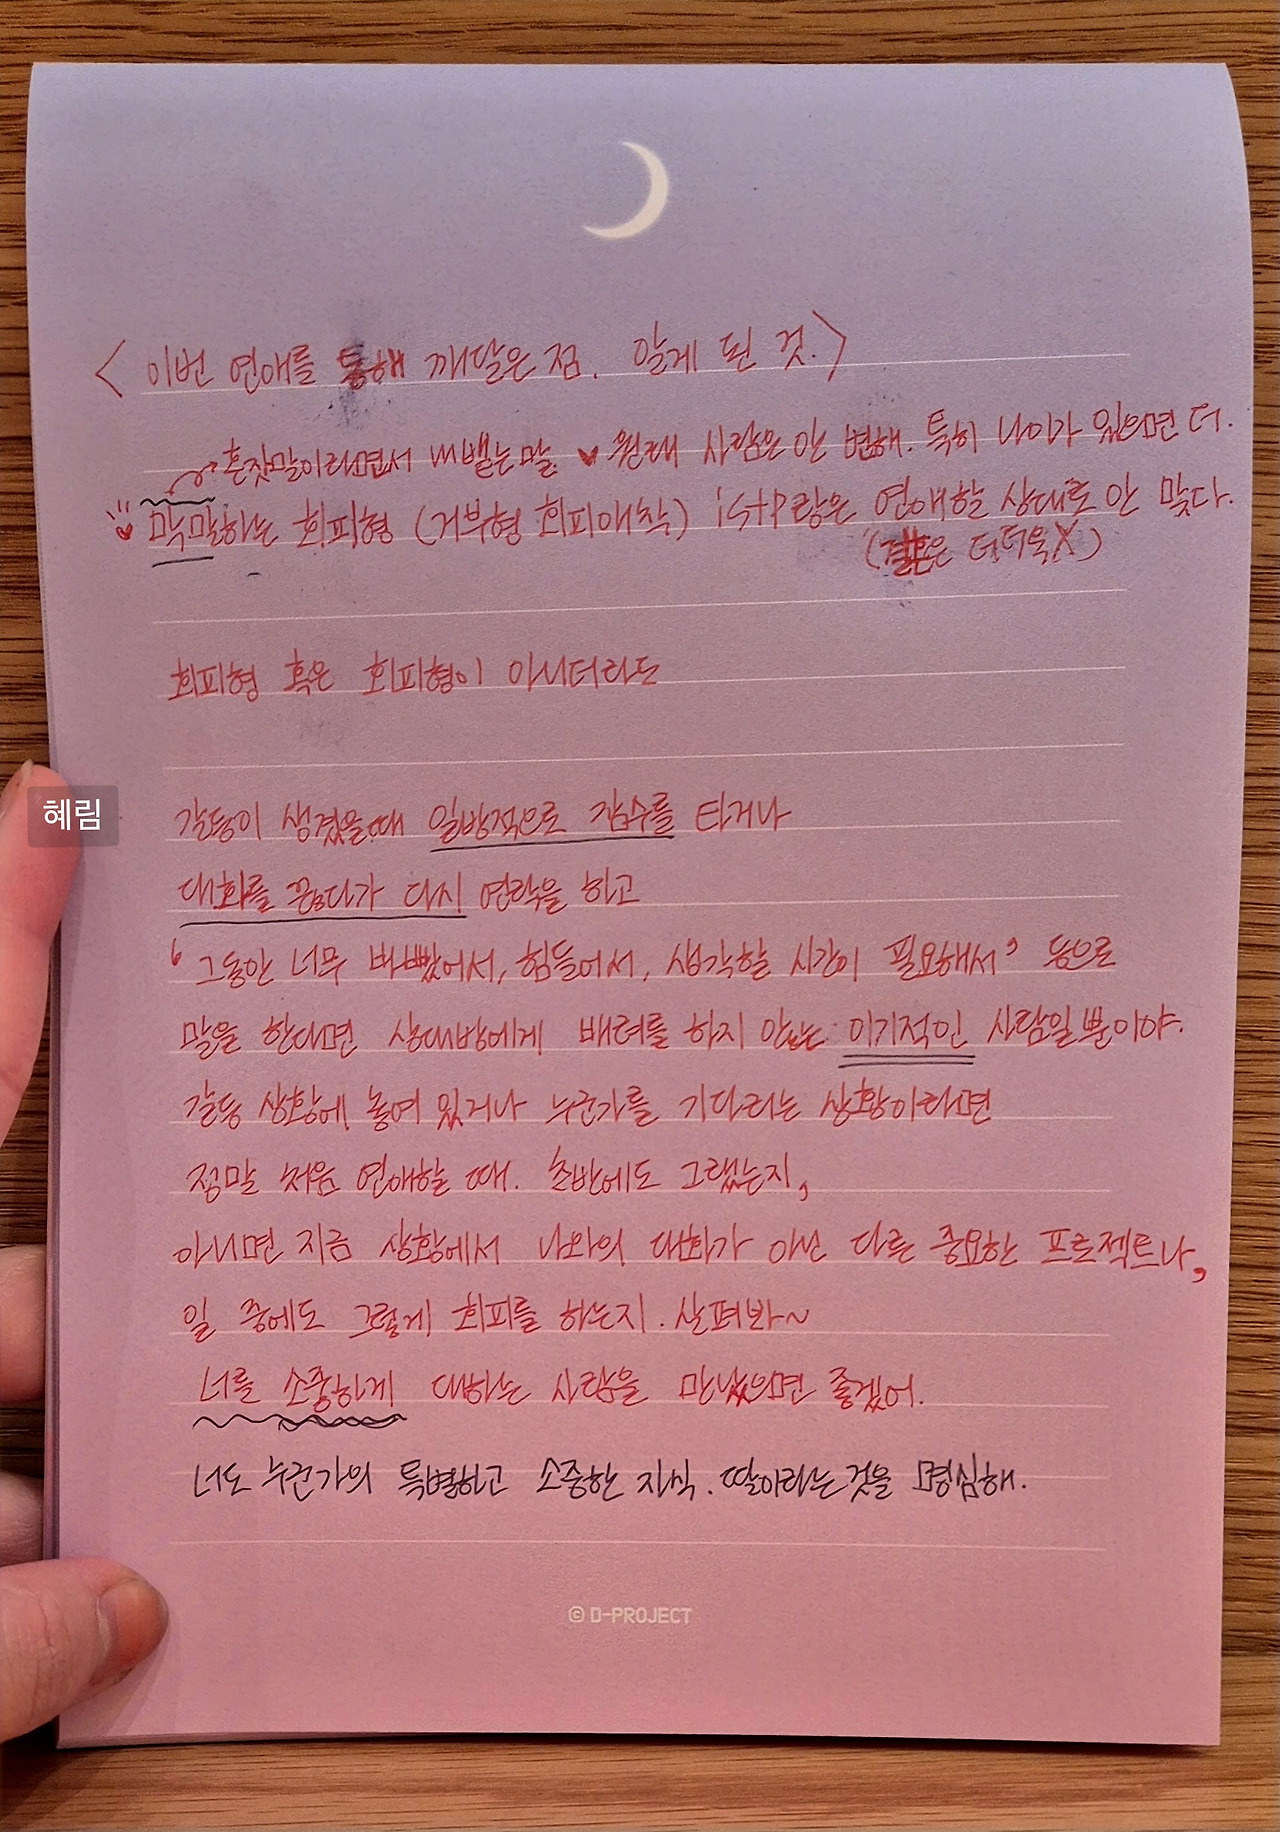 <이번 연애를 통해 깨달은 점. 알게 된 것.>
혼잣말이라면서 내뱉는 말. ♥ 원래 사람은 안 변해. 특히 나이가 있으면 더.
♥ 막말하는 회피형 (거부형 회피애착) istp랑은 연애할 상대로 안 맞다.
(결혼은 더더욱X)
회피형 혹은 회피형이 아니더라도
갈등이 생겼을때 일방적으로 잠수를 타거나
혜림
대화를 끊다가 다시 연락을 하고
'그동안 너무 바빴어서, 힘들어서, 생각할 시간이 필요해서' 등으로
말을 한다면 상대방에게 배려를 하지 않는 이기적인 사람일뿐이야.
갈등 상황에 놓여 있거나 누군가를 기다리는 상황이라면
정말 처음 연애할 때. 초반에도 그랬는지,
아니면 지금 상황에서 나와의 대화가 아닌 다른 중요한 프로젝트나,
일 중에도 그렇게 회피를 하는지. 살펴봐~
너를 소중하게 대하는 사람을 만났으면 좋겠어.
너도 누군가의 특별하고 소중한 자식. 딸이라는것을 명심해.
© D-PROJECT